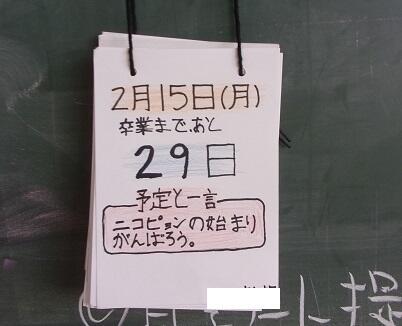 2月15日(月)
卒業まで、あと
29日
予定と一言
ニコピョンの始まり
がんばろう。